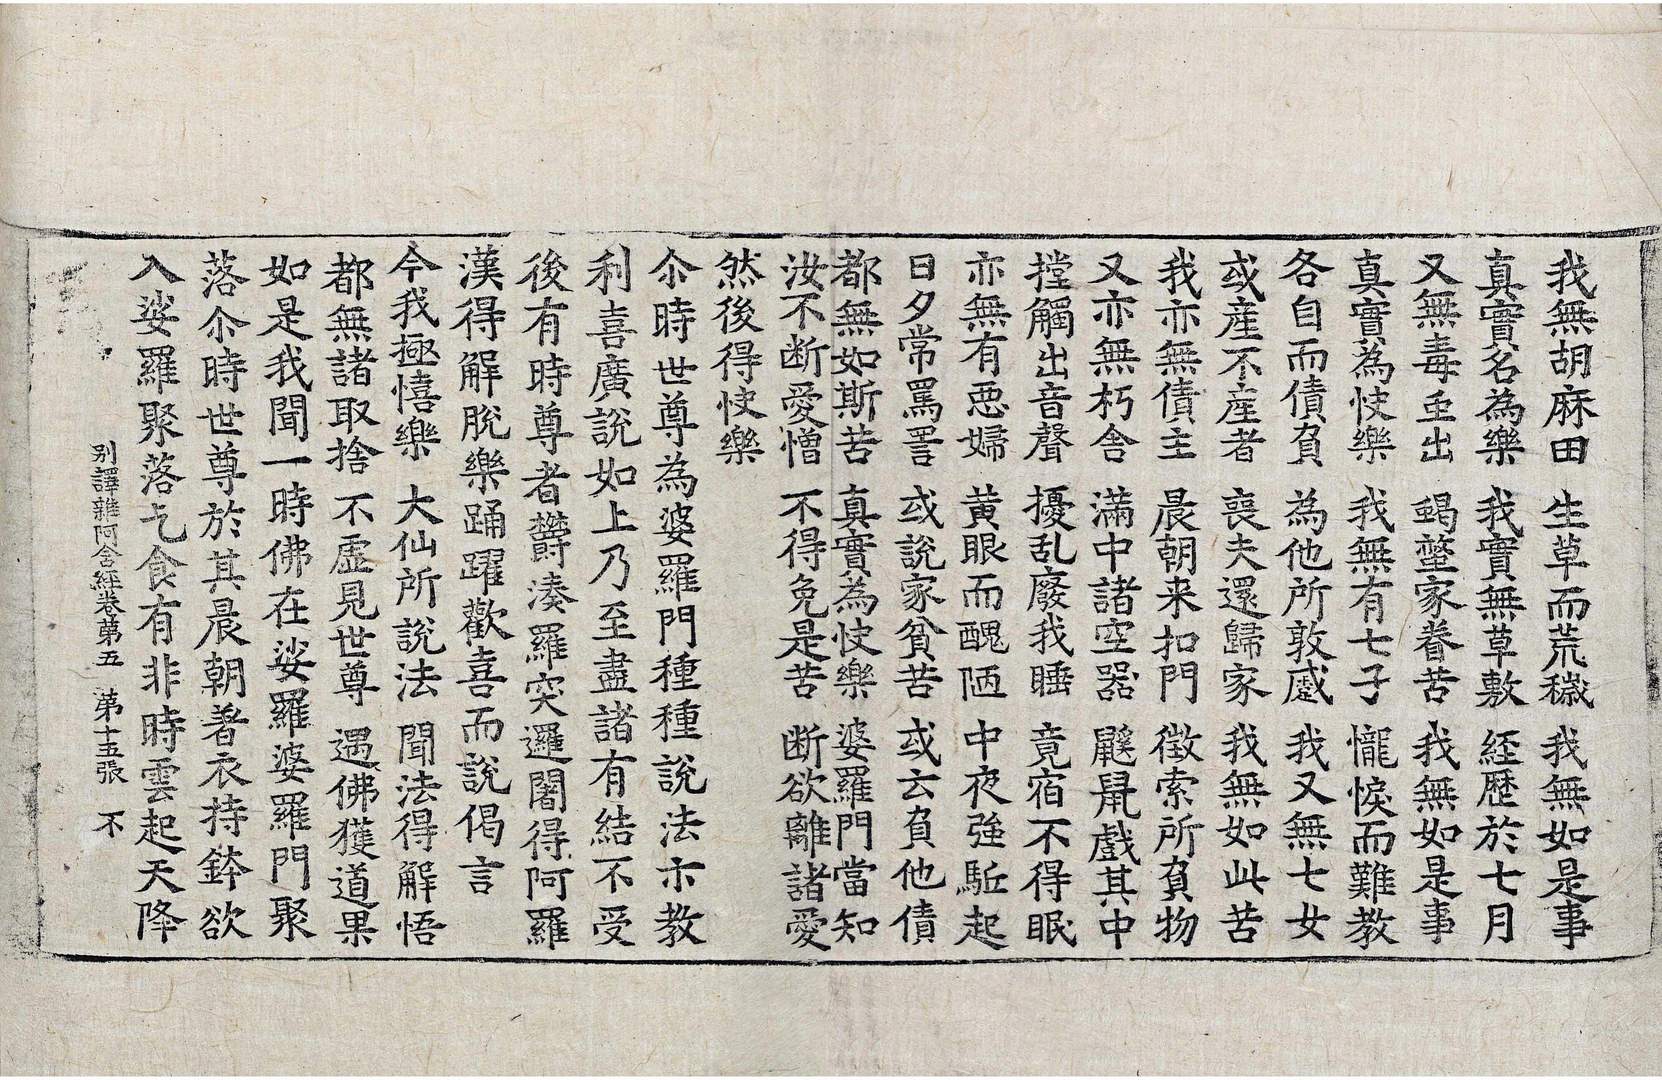 我無胡麻田　生草而荒穢　我無如是事
真實名為樂　我實無草敷　経歷於七月
又無毒虫出　蝎螫家眷苦　我無如是事
真實為快樂　我無有七子　㦨悷而難教
各自而債負　為他所敦蹙　我又無七女
或産不産者　喪夫還歸家　我無如此苦
我亦無債主　晨朝来扣門　徴索所負物
又亦無朽舍　滿中諸空器　鼷鼠戲其中
搪觸出音聲　擾乱廢我睡　竟宿不得眠
亦無有惡婦　黄眼而醜陋　中夜強駈起
日夕常罵詈　或說家貧苦　或云負他債
都無如斯苦　真實為快樂　婆羅門當知
汝不断愛憎　不得免是苦　断欲離諸愛
然後得快樂
尒時世尊為婆羅門種種說法示教
利喜廣說如上乃至盡諸有結不受
後有時尊者欝湊羅突邏闍得阿羅
漢得解脫樂踊躍歡喜而說偈言
今我極憘樂　大仙所說法　聞法得解悟
都無諸取捨　不虛見世尊　遇佛獲道果
如是我聞一時佛在娑羅婆羅門聚
落尒時世尊於其晨朝著衣持鉢欲
入娑羅聚落乞食有非時雲起天降
别譯雜阿含經卷苐五　苐十五張　不